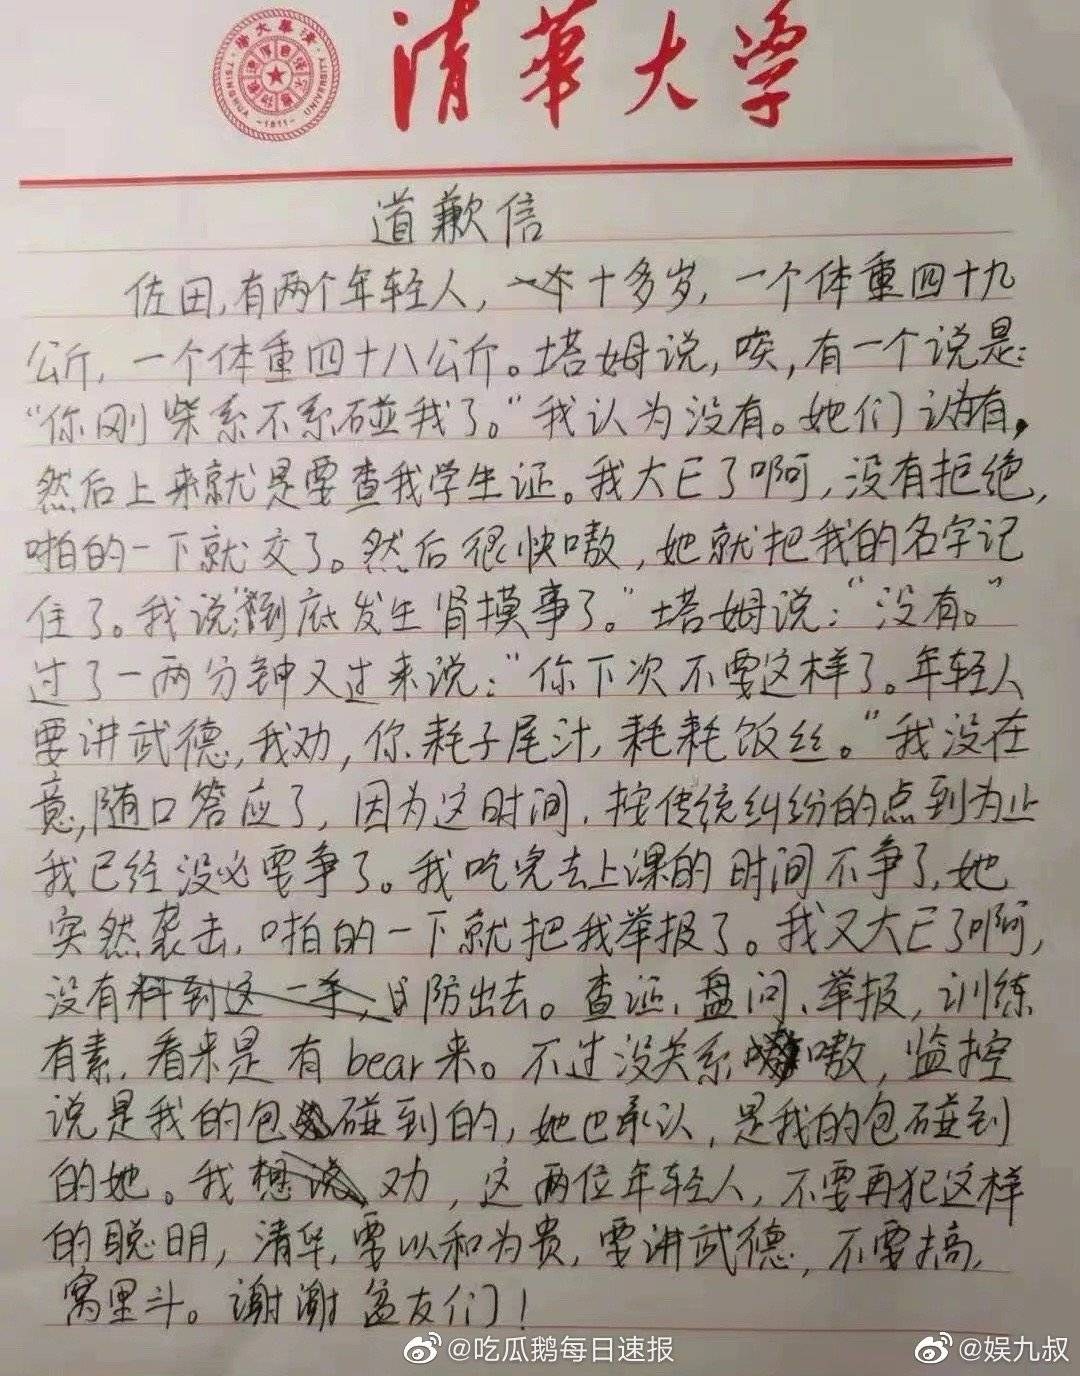 清華大学
道歉信
佐田,有两个年轻人,一个十多岁,一个体重四十九
公斤,一个体重四十八公斤。塔姆说,唉,有一个说是:
“你刚柴系不系碰我了。”我认为没有。她们认为有。
然后上来就是要查我学生证。我大E了啊,没有拒绝,
啪的一下就交了。然后很快嗷,她就把我的名字记
住了。我说:“到底发生肾摸事了。”塔姆说:“没有。”
过了一两分钟又过来说:“你下次不要这样了。年轻人
要讲武德,我劝,你耗子尾汁,耗耗饭丝。”我没在
意,随口答应了,因为这时间,按传统纠纷的点到为止
我已经没必要争了。我吃完去上课的时间不争了,她
突然袭击,啪的一下就把我举报了。我又大E了啊,
没有料到这一手,防出去。查证、盘问、举报,训练
有素,看来是有bear来。不过没关系嗷,监控
说是我的包碰到的,她也承认,是我的包碰到
的她。我想说劝,这两位年轻人,不要再犯这样
的聪明,清华,要以和为贵,要讲武德,不要搞
窝里斗。谢谢盆友们!
@吃瓜鹅每日速报
@娱九叔